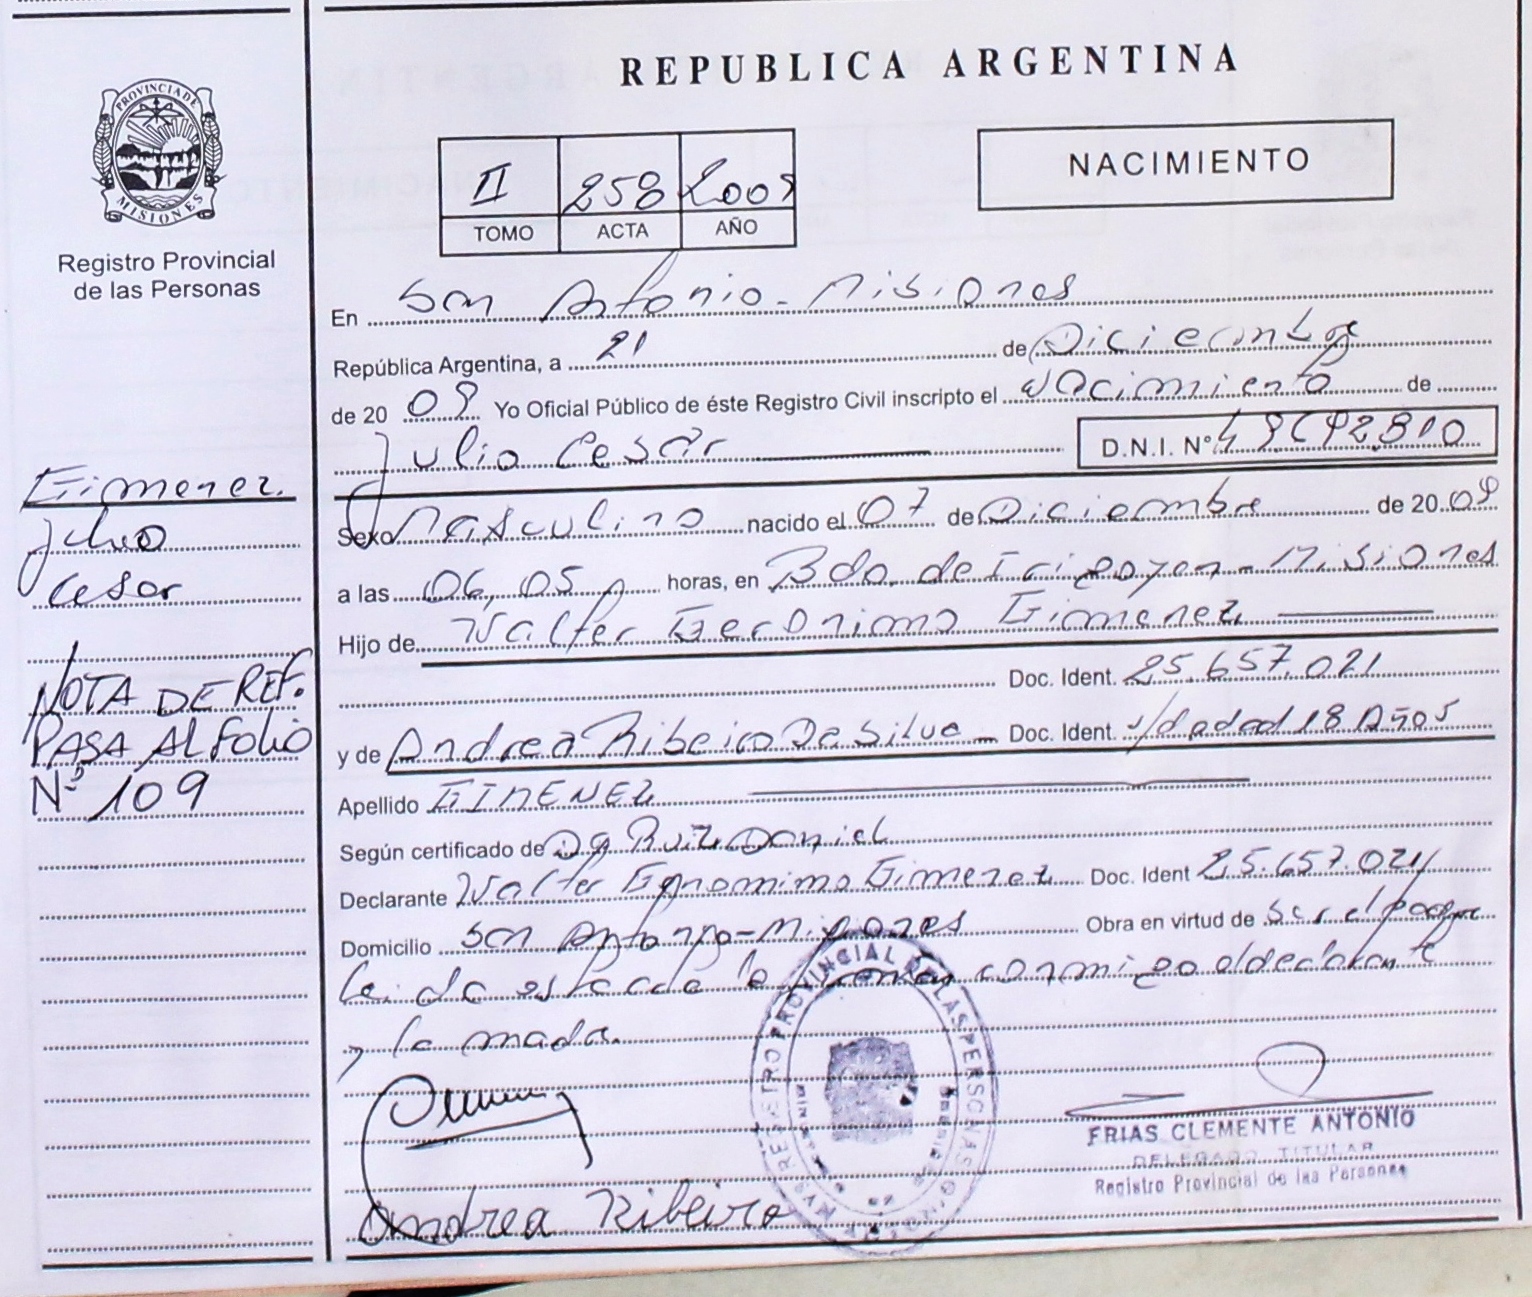 REPUBLICA ARGENTINA
PROVINCIA DE
MISIONES
Registro Provincial
de las Personas
II 258 2009
TOMO ACTA AÑO
NACIMIENTO
En San Antonio - Misiones
República Argentina, a 21 de Diciembre
de 20 09 Yo Oficial Público de éste Registro Civil inscripto el Nacimiento de
Julio Cesar D.N.I. Nº
Sexo Masculino nacido el 07 de Diciembre de 20 09
a las 06,05 horas, en Bdo. de Irigoyen - Misiones
Hijo de Walter Geronimo Gimenez
Doc. Ident. 25.657.021
y de Andrea Ribeiro Da Silva Doc. Ident. s/d edad 18 Años
Apellido GIMENEZ
Según certificado de Dr Ruiz Daniel
Declarante Walter Geronimo Gimenez Doc. Ident 25.657.021
Domicilio San Antonio - Misiones Obra en virtud de ser el padre
Leida esta acta la firman conmigo el declarante
y la madre.
Gimenez
Julio
Cesar
NOTA DE REF.
PASA AL FOLIO
Nº 109
REGISTRO PROVINCIAL DE LAS PERSONAS
FRIAS CLEMENTE ANTONIO
DELEGADO TITULAR
Registro Provincial de las Personas
Andrea Ribeiro